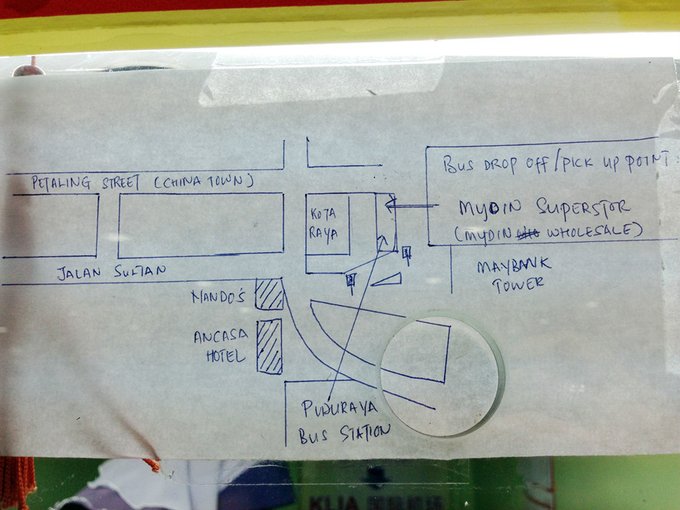 PETALING STREET (CHINA TOWN)
BUS DROP OFF/PICK UP POINT
KOTA
RAYA
MYDIN SUPERSTOR
(MYDIN WHOLESALE)
JALAN SULTAN
MAYBANK
TOWER
NANDO'S
ANCASA
HOTEL
PUDURAYA
BUS STATION
KLIA